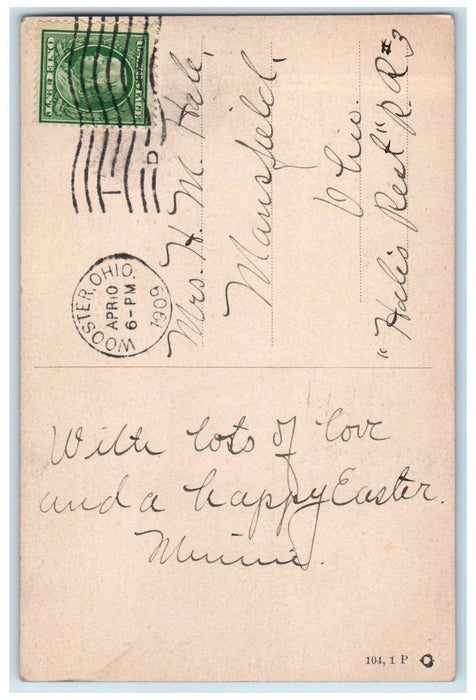 U.S. POSTAGE
ONE CENT
WOOSTER, OHIO.
APR 10
6-PM
1909
Mrs. H. M. Hale,
Mansfield,
Ohio.
"Hale's Rest" R. R. #3
With lots of love
and a happy Easter.
Minnie.
104, 1 P